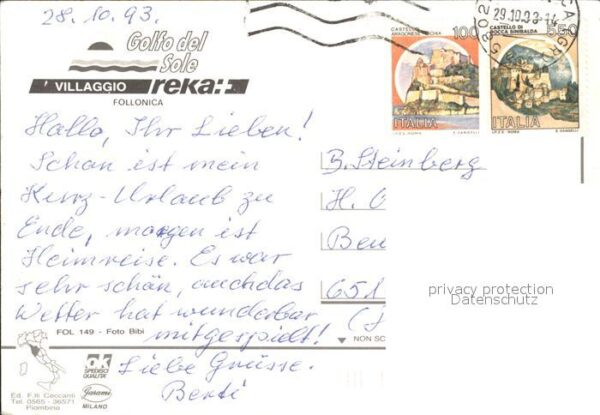 28.10.93.
Golfo del
Sole
VILLAGGIO reka:
FOLLONICA
Hallo, Ihr Lieben!
Schon ist mein
Kurz-Urlaub zu
Ende, morgen ist
Heimreise. Es war
sehr schön, auch das
Wetter hat wunderbar
mitgespielt!
Liebe Grüsse.
Berti
FOL 149 - Foto Bibi
ok
SPEDISCI
QUALITA'
Garami
MILANO
Ed. F.lli Ceccanti
Tel. 0565 - 36571
Piombino
CASTELLO
ARAGONESE ISCHIA
100
ITALIA
CASTELLO DI
ROCCA SINIBALDA
550
ITALIA
29.10.93-14
58025
B. Steinberg
H.
Ben
651
privacy protection
Datenschutz
NON SC